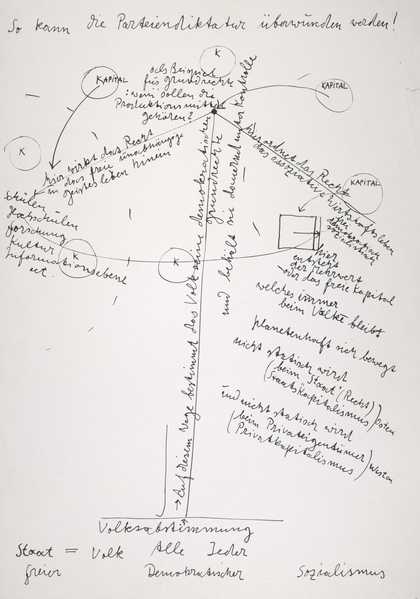 So kann die Parteiendiktatur überwunden werden!
K
KAPITAL
KAPITAL
KAPITAL
K
K
K
als Beispiel
für grundrechte
: wem sollen die
Produktionsmittel
gehören?
hier wirkt das Recht
in das freie unabhängige
geistesleben hinein
Schulen
Hochschulen
Forschung
Kultur
Informationsebene
etc.
hier ordnet das Recht
das assoziative Wirtschaftsleben
im
demokratischen
sozialismus
hier
entsteht
der Mehrwert
oder das freie Kapital
welches immer
beim Volke bleibt
planetenhaft sich bewegt
nicht statisch wird
(beim Staat: Recht)
(Staatskapitalismus) Osten
und nicht statisch wird
(beim Privateigentümer)
(Privatkapitalismus) Westen
→ Auf diesem Wege bestimmt das Volk seine demokratischen
grundrechte
und behält sie dauernd unter Kontrolle
Volksabstimmung
Staat = Volk Alle Jeder
freier Demokratischer Sozialismus